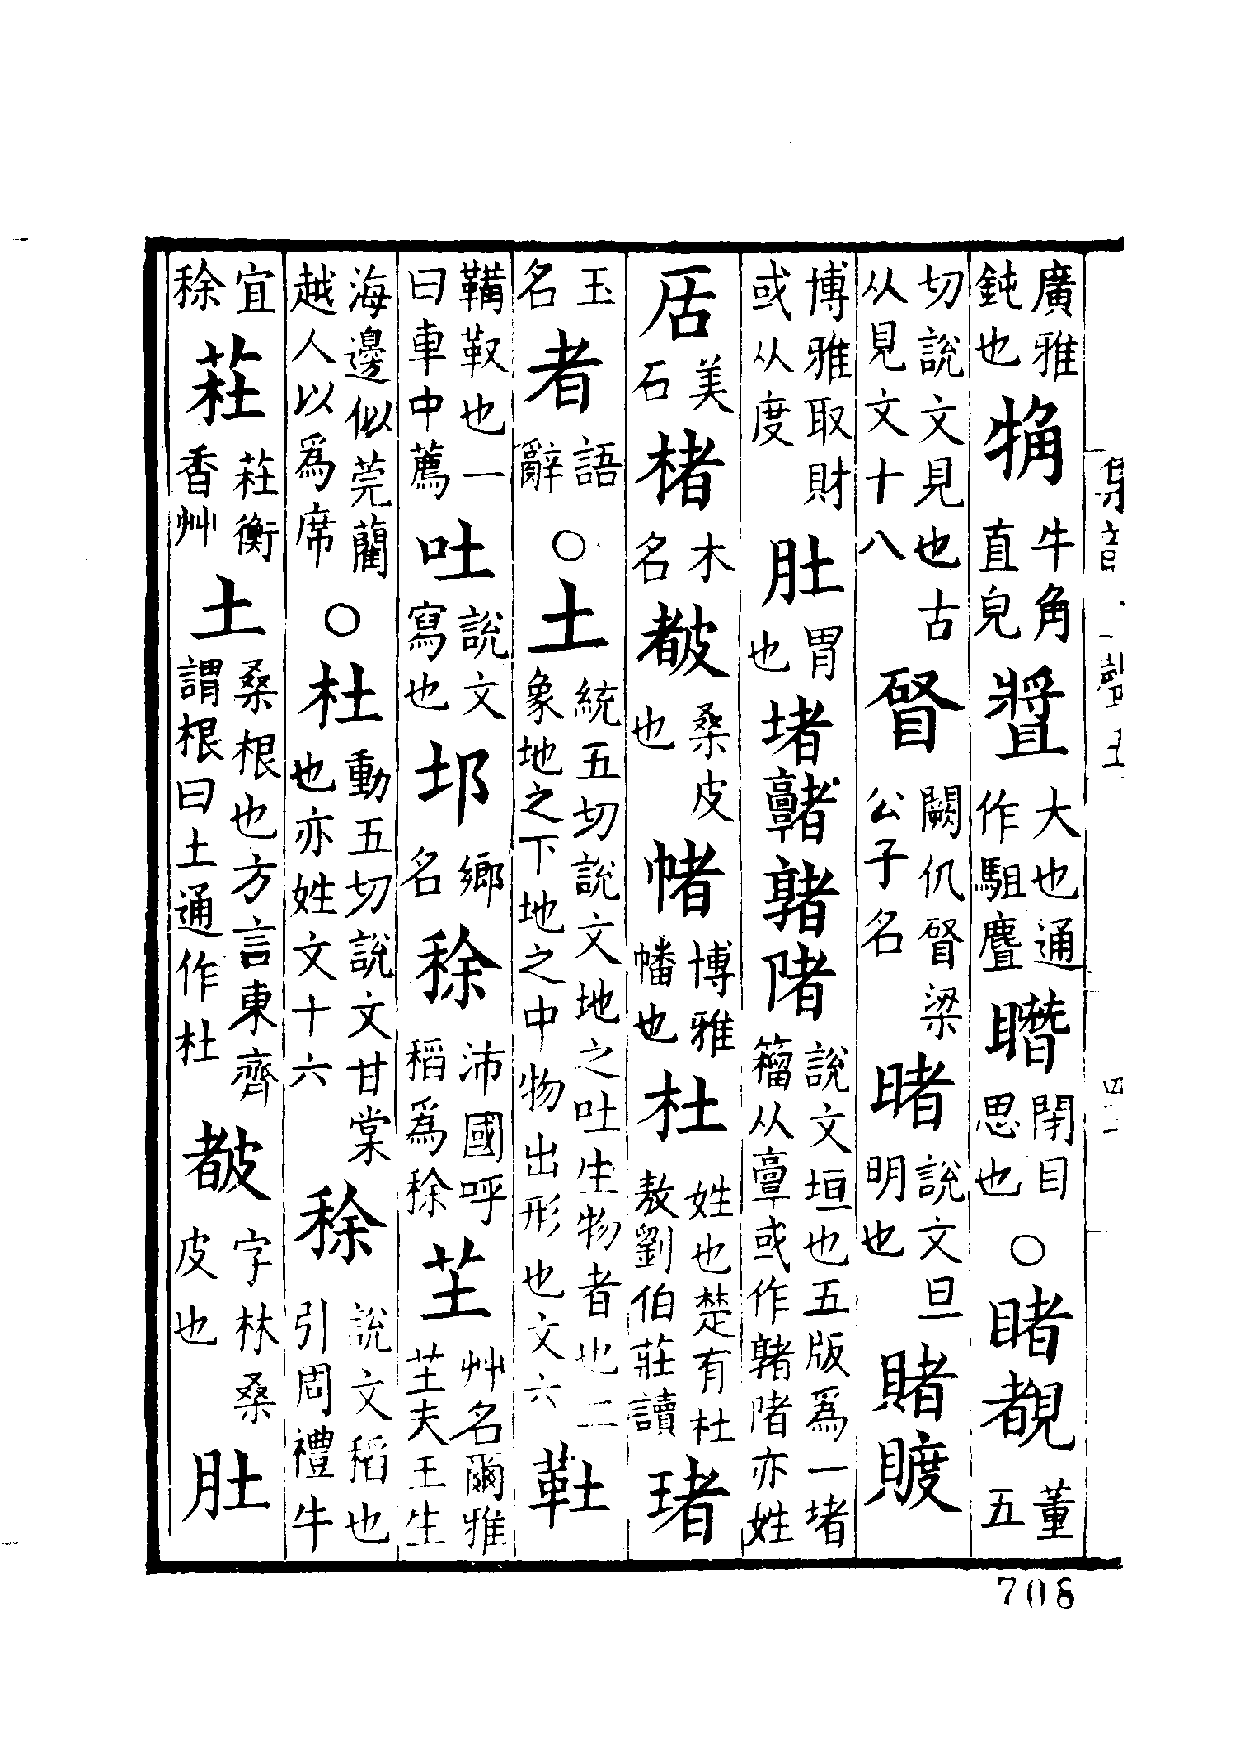 廣雅鈍也觕牛角直皃大也通作駔麆閉目思也○睹覩董五
切說文見也古从見文十八闕仉梁公子名暏說文旦明也賭
博雅取財或从度肚胃也堵陼說文垣也五版爲一堵籀从𩫖或作陼亦姓
㞔美石楮木名桑皮也帾博雅幡也杜姓也楚有杜敖劉伯莊讀琽
玉名者語辭○土統五切說文地之吐生物者也二象地之下地之中物出形也文六靯
鞲靫也一曰車中薦吐說文寫也鄉名稌沛國呼稻爲稌芏艸名爾雅芏夫王生
海邊似莞藺越人以爲席○杜動五切說文甘棠也亦姓文十六稌說文稻也引周禮牛
宜稌荰荰衡香艸土桑根也方言東齊謂根曰土通作杜字林桑皮也肚
708